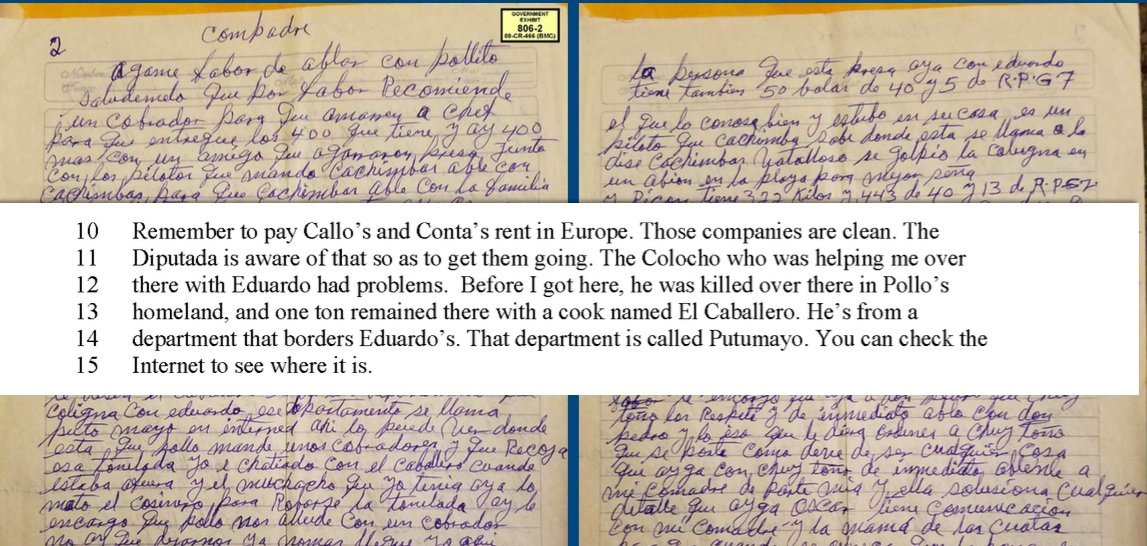 GOVERNMENT
EXHIBIT
806-2
09-CR-466 (BMC)
2
compadre
agame fabor de ablar con pollito
saludemelo que por fabor Recomiende
un cobrador para que amaren a Chef
para que entregue los 400 que tiene y ay 400
mas con un amigo que agararon preso junto
con los pilotos que mando cachimbar able con
cachimbas para que cachimbar able con la familia
la persona que esta presa aya con eduardo
tiene tambien 50 balas de 40 y 5 de R.P.G 7
el que lo conose bien y estubo en su casa es un
piloto que cachimba sabe donde esta se llama o le
dise cachimbas se golpio la en
un abion en la playa por mejor seña
y Picon tiene 322 Kilos y 443 de 40 y 13 de R.P.G7
10 Remember to pay Callo's and Conta's rent in Europe. Those companies are clean. The
11 Diputada is aware of that so as to get them going. The Colocho who was helping me over
12 there with Eduardo had problems. Before I got here, he was killed over there in Pollo's
13 homeland, and one ton remained there with a cook named El Caballero. He's from a
14 department that borders Eduardo's. That department is called Putumayo. You can check the
15 Internet to see where it is.
coligna con eduardo ese departamento se llama
puto mayo en interned ahi lo puede ver donde
esta que pollo mande unos cobradores y que Recoja
esa tonelada yo e chatiado con el caballero cuando
estaba afuera y el muchacho que yo tenia aya lo
mato el cosinero para Robarse la tonelada ay le
encargo que pollo nos allude con un cobrador
no ay que dejarnos ya nomas llegue yo aqui
toño los Respete y de inmediato able con don
pedro y lo eso que le diga ordenes a Chuy toño
que se porte como debe de ser cualquier cosa
que ayga con chuy toño de inmediato ablenle a
mi comadre de parte mia y ella solusiona cualquier
detalle que ayga Oscar tiene comunicacion
con mi comadre y la mama de las cuatas